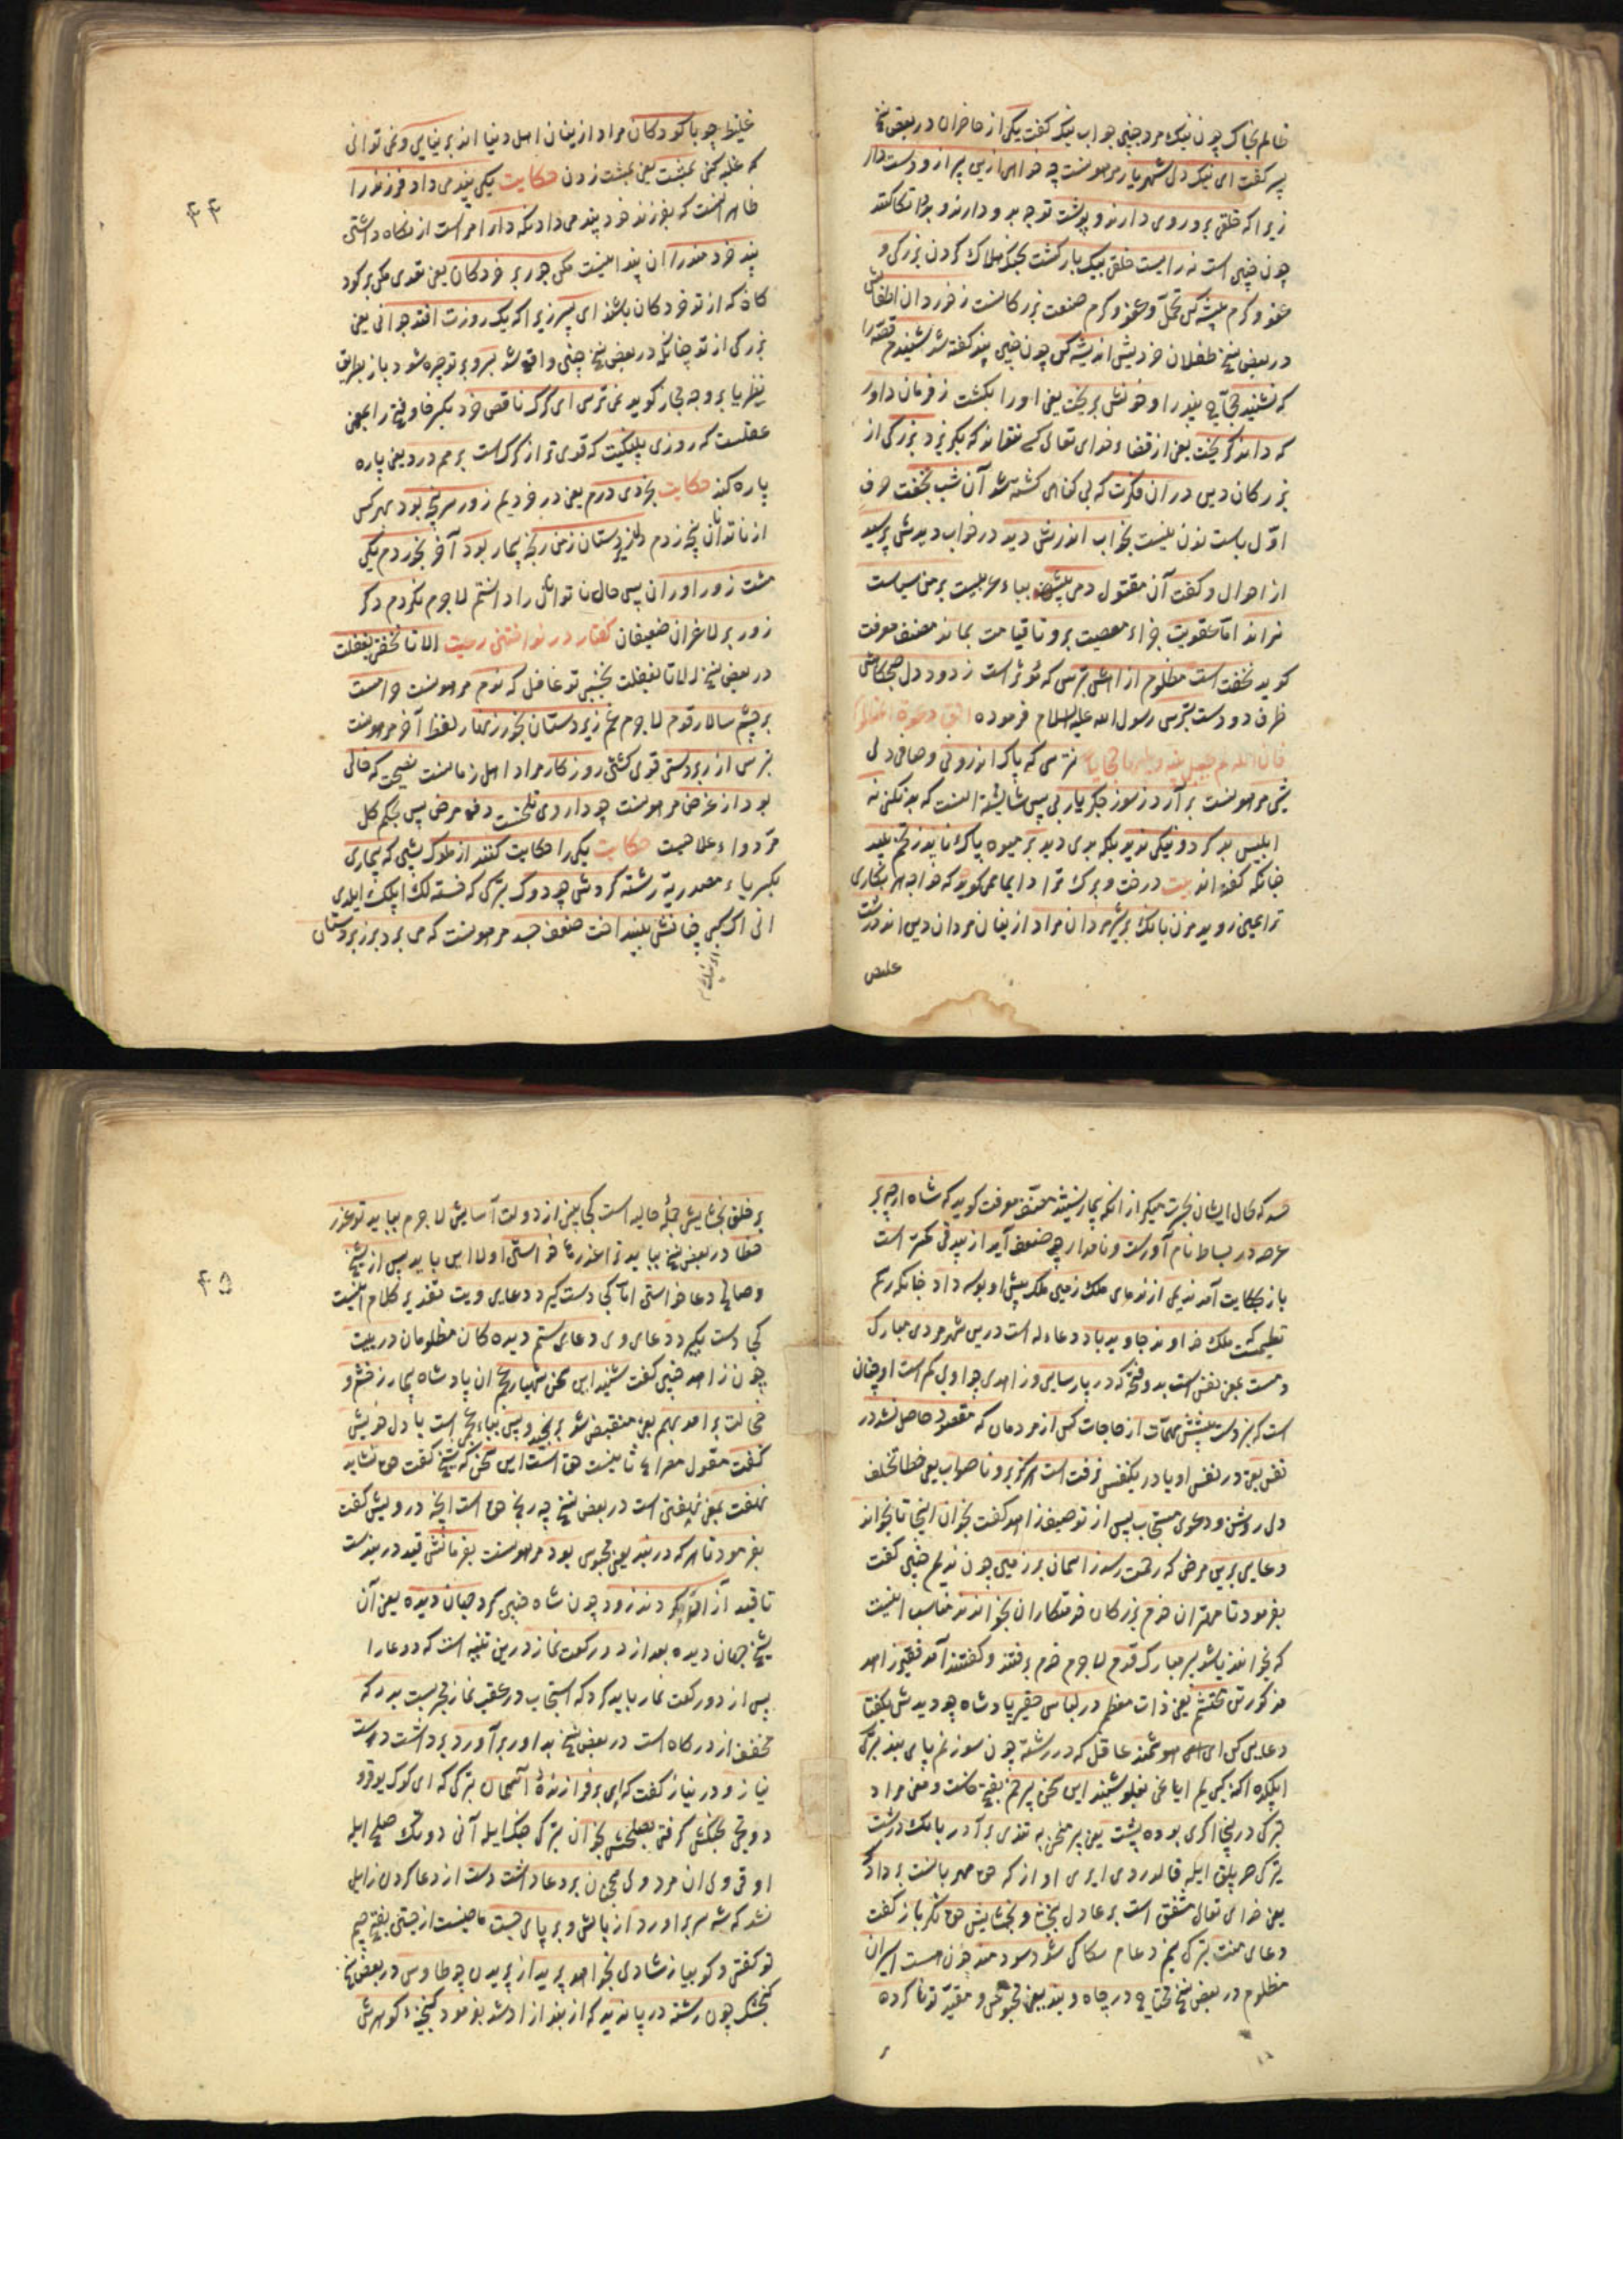 ظالم بخاک چون نیک مرد چنین جواب نیک گفت یکی از حاضران در بعض نسخ
پسر گفت ای نیک دل شهریار مرهونست چه خواهی ازین پیر از و دست دار
زیرا که خلقی برو روی دارند و پشت توجه برو دارند و برو تکا کنند
چون چنین است نه رایست خلقی بیک بار کشت بیک هلاک کردن بزرکی و
عفو و کرم پیشه کن تحمل و عفو و کرم صنعت بزرکانست ز خوردان اطفالش
در بعض نسخ طفلان خردیش اندیشه کن چون چنین پند گفته شد شنیدم قصه را
که نشنید حجاج پند را و خونش بریخت یعنی او را بکشت ز فرمان داور
که داند کریخت یعنی از قضاء خدای تعالی کسی نتواند که بکریزد بزرکی از
بزرکان دین در ان فکرت که بی کناهی کشته شد آن شب بخفت حرف
اول باست نون نیست بخواب اندرش دید در خواب دیدش پرسید
از احوال و گفت آن مقتول دمی بیش بیاء عربیست بر من سیاست
نراند اما عقوبت جزاء معصیت برو تا قیامت بماند مصنف معرفت
کوید نخفت است مظلوم از آهش بترس که مؤثر است ز دود دل صبحکاهش
ظرف دودست بترس رسول الله علیه السلام فرموده اتق دعوة المظلوم
نترسی که پاک اندرونی و صافی دلی
شبی مرهونست برآرد ز سوز جکر یاربی پس شایسته اینست که بد نکنی نه
ابلیس بد کرد و نیکی ندید بلکه بدی دید بر میوه پاک ناید ز تخم پلید
چنانکه گفته اند بیت درخت و برک ترا دایما همی کوید که خواجه هر چه بکاری
ترا همین روید مزن بانک بر شیر مردان مراد از ینان مردان دین اند درشت
علیص
۴۴
غلیظ چو با کودکان مراد ازینان اهل دنیا اند بر نیایی و نمی توانی
که غلبه کنی بمشت یعنی بمشت زدن حکایت یکی پند می داد فرزند را
ظاهر اینست که بفرزند خود پند می داد نکه دار امر است از نکاه داشتی
پند خردمند را ان پند اینست مکن جور بر خردکان یعنی تعدی مکن بر کود
کان که از تو خردکان باشند ای پسر زیرا که یک روزت افتد جوانی یعنی
بزرکی از تو چنانکه در بعض نسخ چنین واقع شد بسر و بر تو چره شود باز بطریق
نظر یا بر وجه مجاز کوید نمی ترسی ای کرک ناقص خرد بکسر خا و فتح را بمعنی
عقلست که روزی پلنکیت که قوی تر از کرک است بر هم درد یعنی پاره
پاره کند حکایت بخردی درم یعنی در خردیم زور سر پنجه بود می هر کس
از ناتوانان پنجه زدم دل زیردستان ز من رنجه بیمار بود آخر بخوردم یکی
مشت زور اوران پس حال ناتوانان را دانستم لاجرم نکردم دکر
زور بر لاغران ضعیفان کفتار در نواختنی رعیت الا تا نخفتی بغفلت
در بعض نسخ الا تا بغفلت نخسبی تو غافل که نوم مرهونست حرامست
بر چشم سالار قوم لاجرم غم زیردستان بخور زنهار لفظ آخر مرهونست
بترس از زبردستی قوی کشتی روزکار مراد اهل زمانست نصیحت که خالی
بود از غرض مرهونست چو داروی تلخست دفع مرض پس بحکم کل
مر دواء علاجیت حکایت یکی را حکایت کنند از ملوک پیشی که بیماری
بکسر یاء مصدریة رشته کردش چو دوک ترکی که خسته لک اپلک ایلدی
انی اک کبی چنانش بینداخت ضعف جسد مرهونست که می برد بر زیردستان
خسد که کمال ایشان بحسرت میکرد از انکه بیمار نشیند مصنف معرفت کوید که شاه ارچه بر
عرصه در بساط نام آورست و نامدار چو ضعف آید از بیدقی کمتر است
باز بحکایت آمد ندیمی از ندمای ملک زمین ملک پیش او بوسه داد چنانکه رسم
تعلیمست ملک خداوند جاوید باد دعاء له است درین شهر مردی مبارک
دمست یعنی نفس است بد و فتح که در پارسایی و زاهدی چو اویی کم است او چنان
است که نبردست پیشش مهمات از حاجات کس از مردمان که مقصود حاصل نشد در
نفس یعنی در نفس او یا در یکنفس نرفت است هرکز برو ناصواب یعنی خطا تخلف
دل روشن و دعوی مستجاب پس از توصیف زاهد گفت بخوان اینجا تا بخواند
دعایی برین مرض که رحمت رسد ز اسمان بر زمین چون ندیم چنین گفت
بفرمود تا مهتران خرم بزرکان خدمتکاران بخواندند مناسب اینست
که بخوانند یا شد پیر مبارک قدم لاجرم خرم برفتند و گفتند آمد فقیر زاهد
مذکورتن محتشم یعنی ذات معظم در لباس حقیر پادشاه چو دیدش بگفتا
دعایی کن ای هوشمند عاقل که در رشته چون سوزنم پای بند ترکی
ایپلکده اکنه کبی یم ایاغی بغلو شنید این سخن پیر خم بفتح خاست و معنی مراد
ترکی در پنجه اکری بوده پشت یعنی پیر منحنی به تندی برآورد بانک درشت
ترکی حر پلق ایله قالدردی ایری اواز که حق مهربانست بر دادگر
یعنی خدای تعالی مشفق است بر عادل ببخشا و بخشایش حق نکر باز گفت
دعای منت ترکی بنم دعام سکا کی شود سودمند چون هست اسیران
مظلوم در بعض نسخ محتاج در چاه و بند یعنی محبوس و مقید تو نا کرده
۴۵
بر خلق بخشایش جملهٔ حالیه است کجا بینی از دولت آسایش لاجرم بباید تو عذر
خطا در بعض نسخ بباید ترا عذر خطا خواستی اولا این باید پس از شیخ
و صالح دعا خواستی اما کجا دست کیرد دعایی ویت تقدیر کلام اینست
کجا دست بکیرد دعای وی دعای ستم دیده کان مظلومان در پیت
چون زاهد چنین گفت شنید این سخن شهریار عجم ان پادشاه بیمار ز خشم و
خجالت برامد بهم یعنی منقبض شد برنجید و پس بیاء عجمی است با دل خویش
گفت مقول مصراع ثانیست حق است این سخن که شیخ گفت حق نشاید
نهفت بمعنی نهفتن است در بعض نسخ چه رنجم حق است انچه درویش گفت
بفرمود تا هر که در بند یعنی محبوس بود مرهونست بفرمانش قید در بندست
تا قید آزاد کردند زود چون شاه چنین کرد جهان دیده یعنی آن
شیخ جهان دیده بعد از دو رکعت نماز درین تنبیه است که دو دعا را
پس از دو رکعت نماز باید کرد که استجاب در عقیب نماز قریبست بدر که
مخفف از درکاه است در بعض نسخ بداور برآورد برداشت دست
نیاز و در نیاز گفت که ای برفرازندهٔ آسمان ترکی که ای کوک یوقرو
دوتجی بجنکش کرفتی بصلحش بخوان ترکی جنک ایله آنی دوتدک صلح ایله
اوقی ولی ان مرد ولی همچنان بر دعا داشت دست از دعا کردن زایل
نشد که شه سر براورد از بالش و بر پای جست ماضیست از جستی بفتح جیم
تو گفتی و کوییا ز شادی بخواهد پرید از پریدن چو طاوس در بعض نسخ
کنجشک چون رشته در پا ندید که از بند ازاد شد بفرمود کنجینهٔ کوهرش